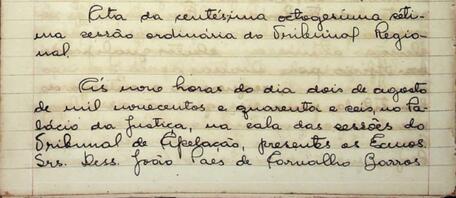 Ata da centésima octogesima séti-
ma sessão ordinária do Tribunal Regio-
nal.
Ás nove horas do dia dois de agosto
de mil novecentos e quarenta e seis, no Pa-
lácio da Justiça, na sala das sessões do
Tribunal de Apelação, presentes os Exmos
Srs. Dess. João Paes de Carvalho Barros